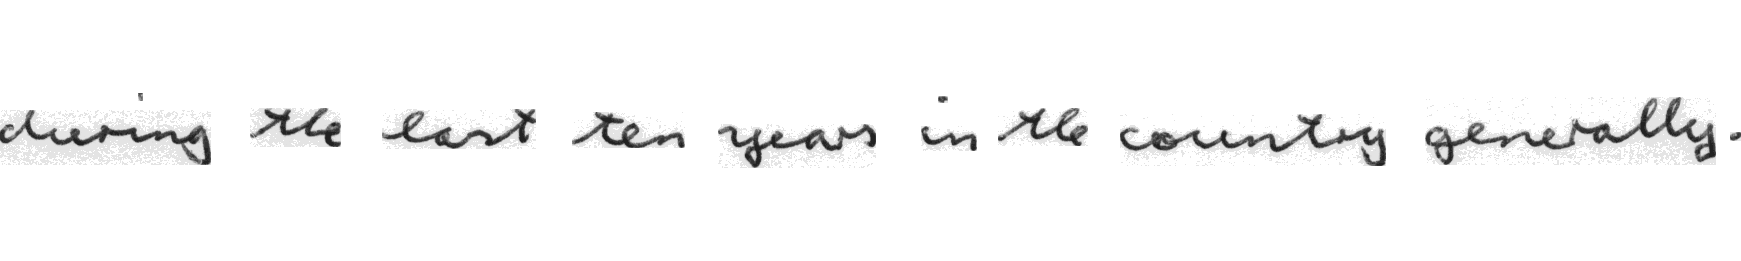 during the last ten years in the country generally.